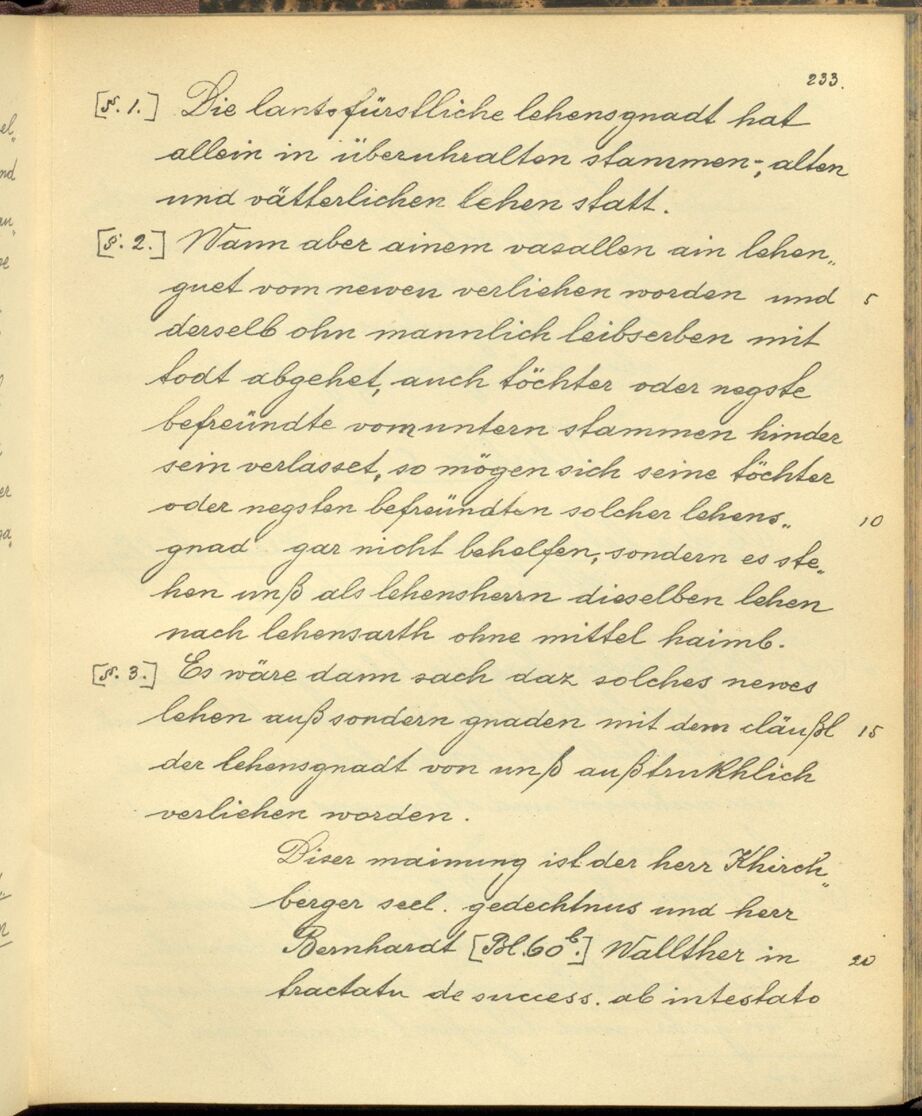 233.
[§. 1.] Die lantsfürstliche lehensgnadt hat
allein in überuhralten stammen-, alten
und vätterlichen lehen statt.
[§. 2.] Wann aber ainem vasallen ain lehen„
guet vom newen verliehen worden und 5
derselb ohn mannlich leibserben mit
todt abgehet, auch töchter oder negste
befreündte vom untern stammen hinder
sein verlasset, so mögen sich seine töchter
oder negsten befreündten solcher lehens„ 10
gnad gar nicht behelfen, sondern es ste„
hen unß als lehensherrn dieselben lehen
nach lehensarth ohne mittel haimb.
[§. 3.] Es wäre dann sach daz solches newes
lehen auß sondern gnaden mit dem cläußl 15
der lehensgnadt von unß außtrukhlich
verliehen worden.
Diser mainung ist der herr Khirch„
berger seel. gedechtnus und herr
Bernhardt [Bl. 60b.] Wallther in 20
tractatu de success. ab intestato